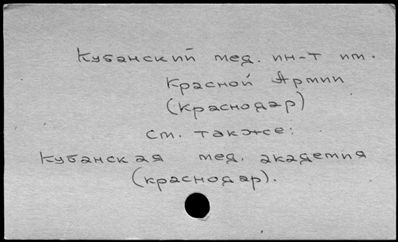 Кубанский мед. ин-т им.
Красной Армии
(Краснодар)
см. также:
Кубанская мед. академия
(краснодар).